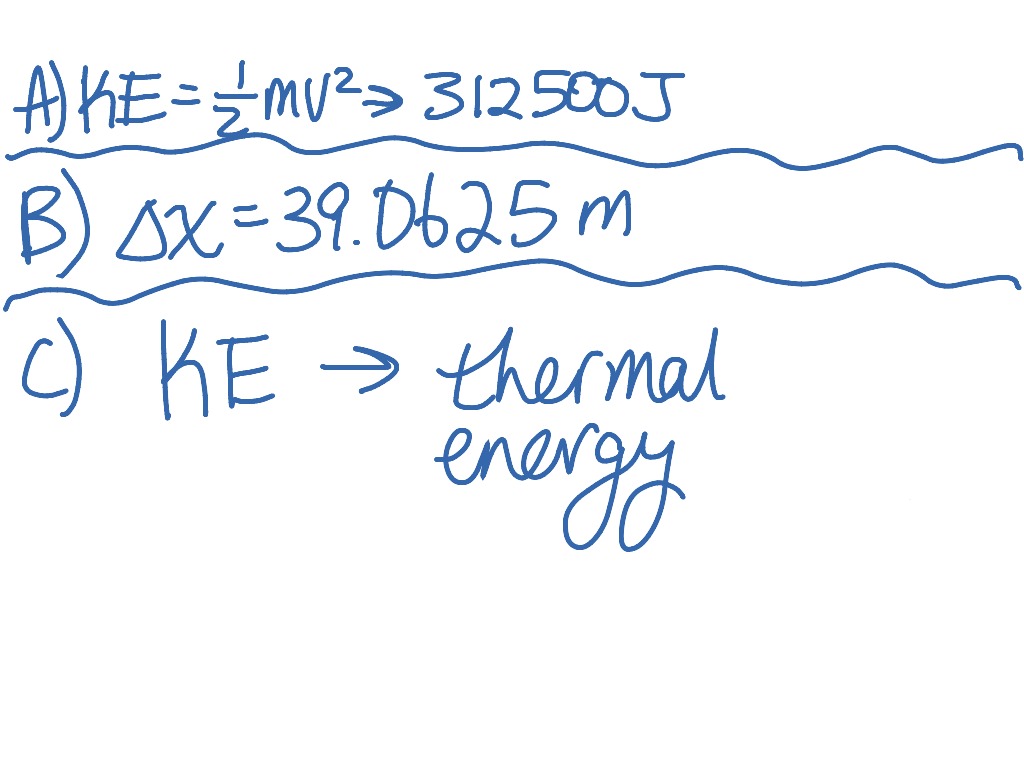 A) KE = 1/2 mv² → 312500J
B) Δx = 39.0625 m
C) KE → thermal
energy